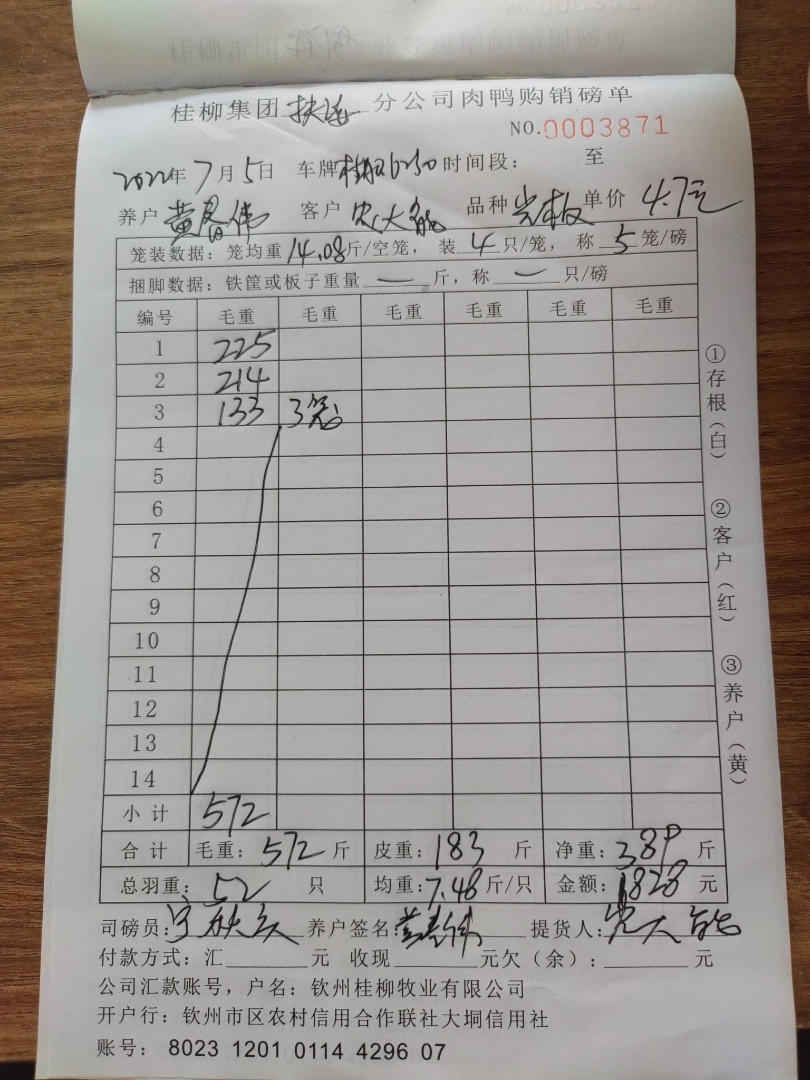 桂柳集团 分公司肉鸭购销磅单
NO.0003871
2022年7月5日 车牌 6230 时间段： 至
养户 黄春伟 客户 品种 光板 单价 4.7元
笼装数据：笼均重14.08斤/空笼，装4只/笼，称5笼/磅
捆脚数据：铁筐或板子重量—斤，称—只/磅
编号 毛重 毛重 毛重 毛重 毛重 毛重
1 225
2 214
3 133 3笼
4
5
6
7
8
9
10
11
12
13
14
小计 572
合计 毛重：572斤 皮重：183斤 净重：389斤
总羽重：52只 均重：7.48斤/只 金额：1828元
司磅员： 养户签名：黄春伟 提货人：
付款方式：汇 元 收现 元欠（余）： 元
公司汇款账号，户名：钦州桂柳牧业有限公司
开户行：钦州市区农村信用合作联社大垌信用社
账号： 8023 1201 0114 4296 07
①存根（白）
②客户（红）
③养户（黄）